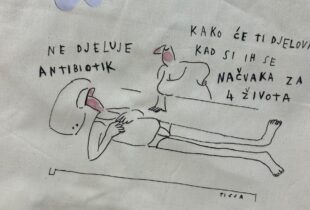 NE DJELUJE
ANTIBIOTIK
KAKO ĆE TI DJELOVA
KAD SI IH SE
NAČVAKA ZA
4 ŽIVOTA